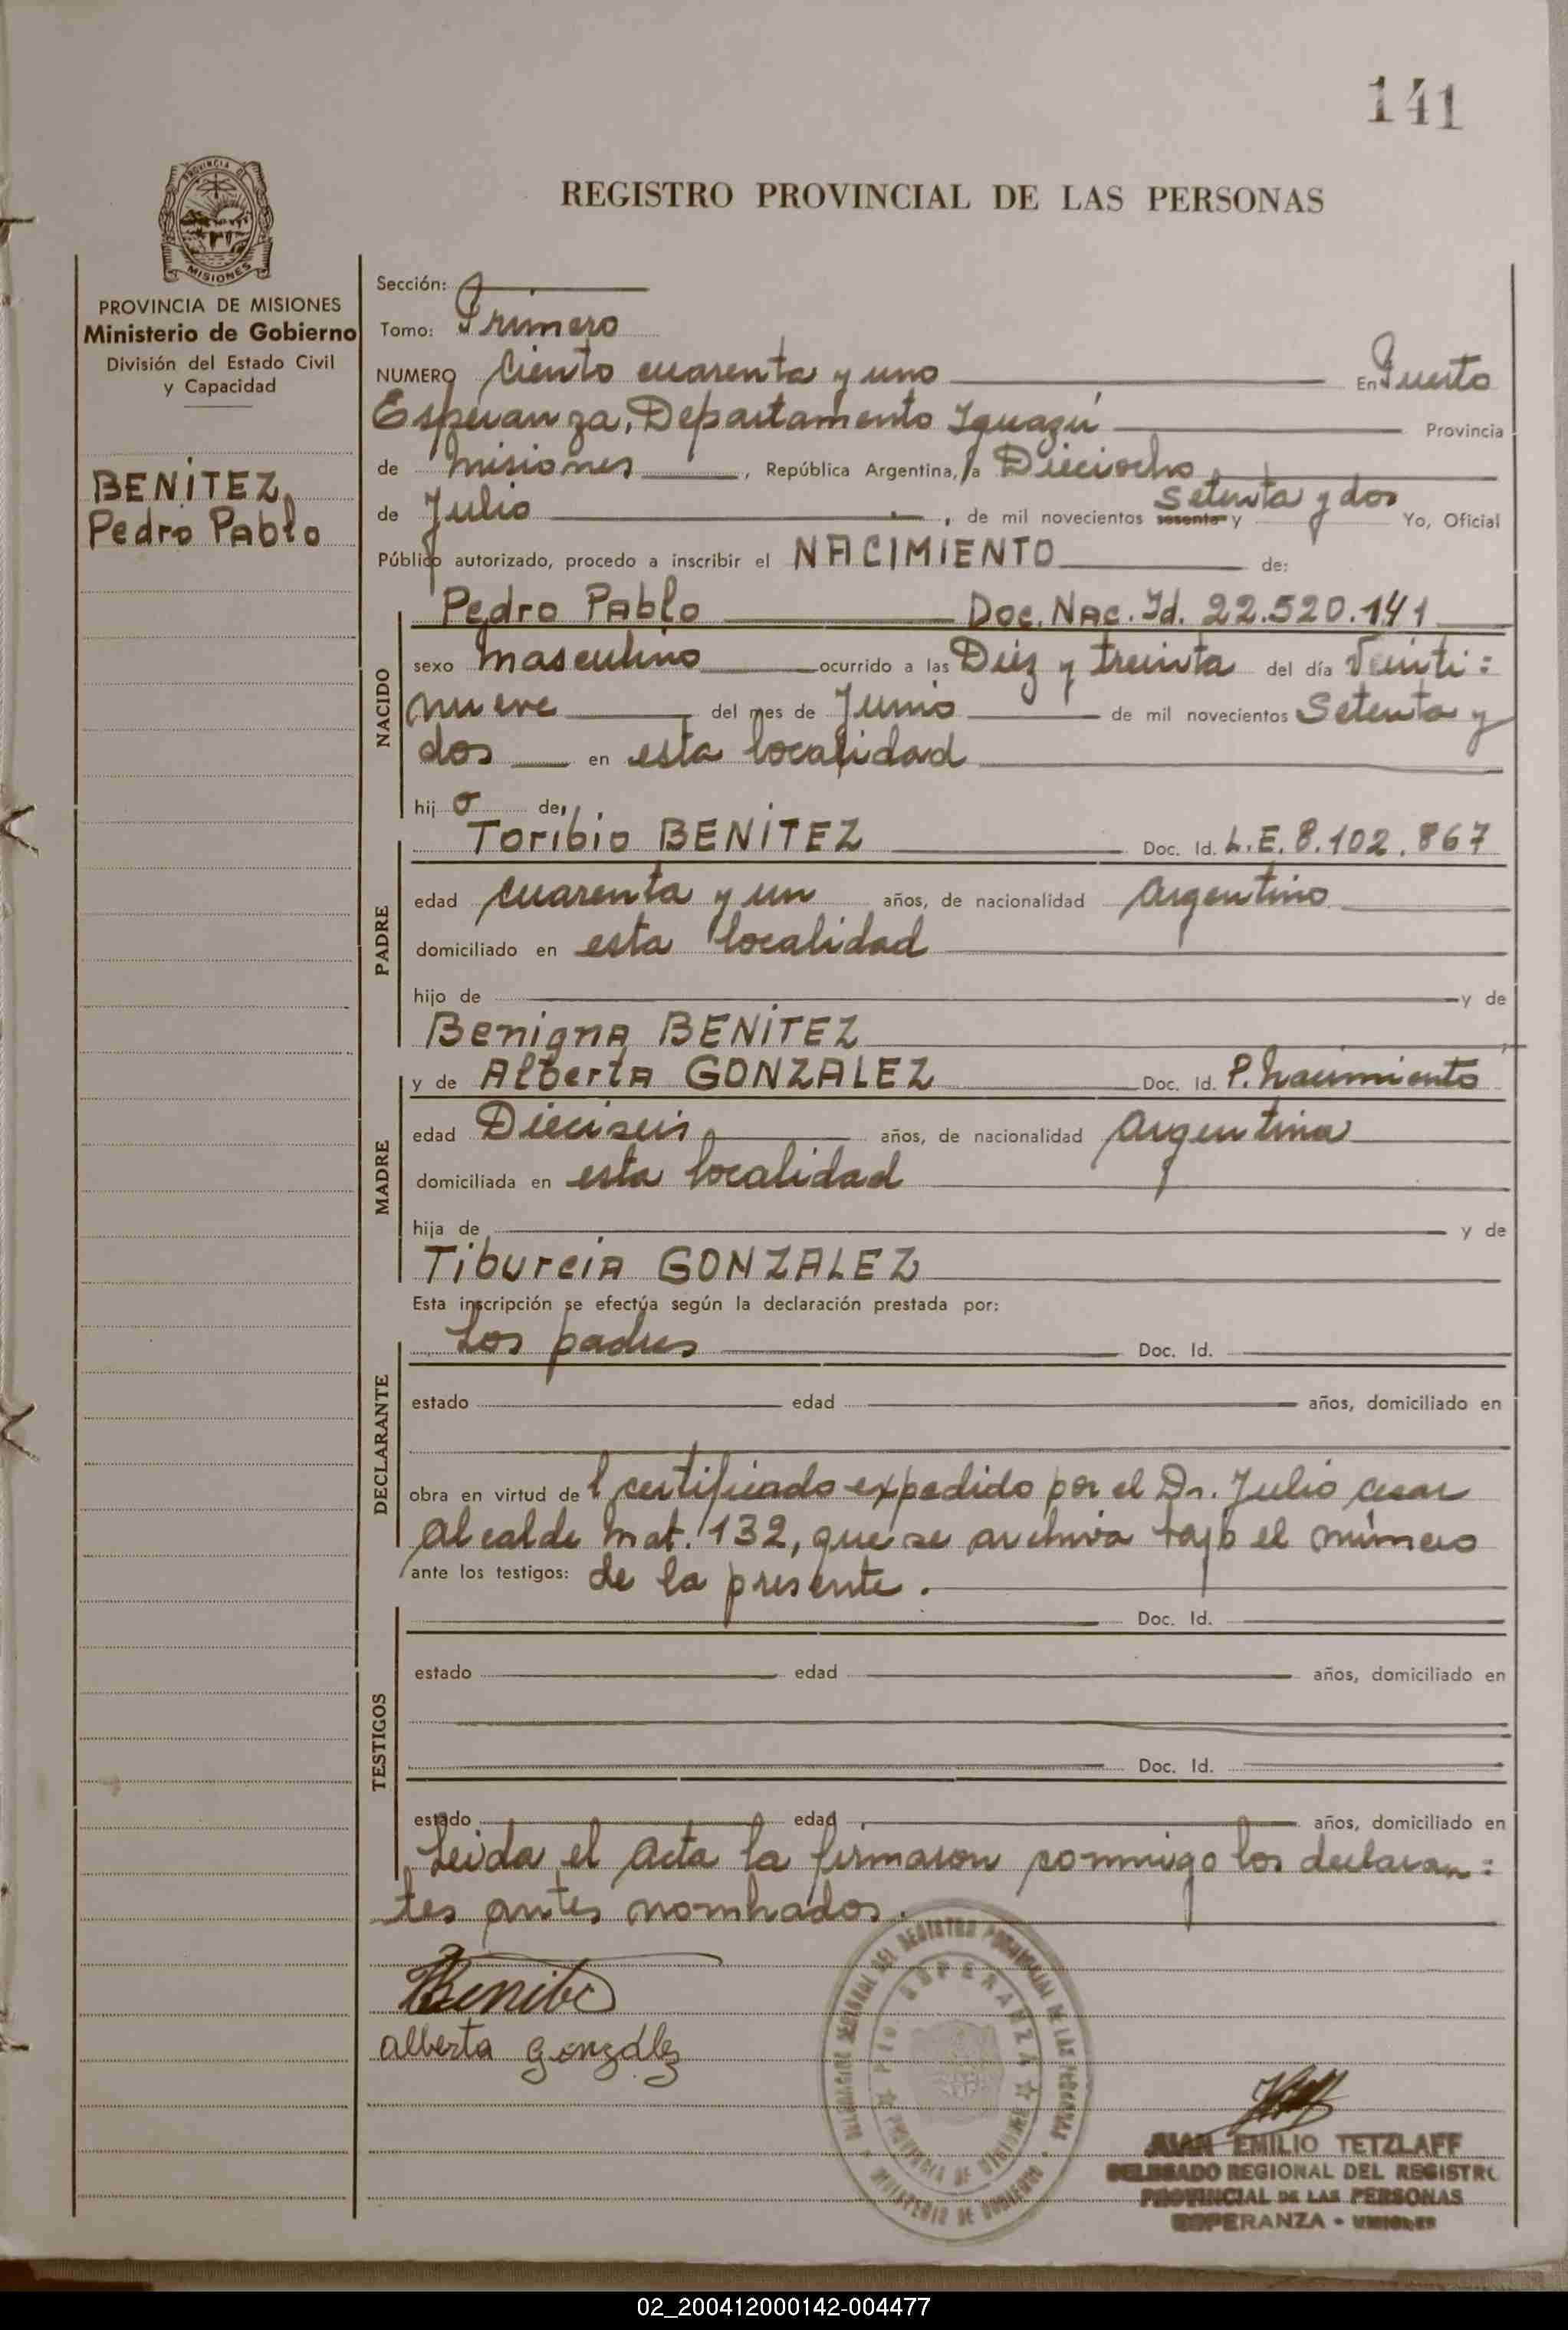 141
PROVINCIA DE
MISIONES
REGISTRO PROVINCIAL DE LAS PERSONAS
PROVINCIA DE MISIONES
Ministerio de Gobierno
División del Estado Civil
y Capacidad
BENÍTEZ,
Pedro Pablo
Sección:
Tomo: Primero
NUMERO Ciento cuarenta y uno En Puerto
Esperanza, Departamento Iguazú Provincia
de Misiones, República Argentina, a Dieciocho
de Julio, de mil novecientos sesenta y Setenta y dos Yo, Oficial
Público autorizado, procedo a inscribir el NACIMIENTO de:
NACIDO
Pedro Pablo Doc. Nac. Id. 22.520.141
sexo masculino ocurrido a las Diez y treinta del día Veinti=
nueve del mes de Junio de mil novecientos Setenta y
dos en esta localidad
hij o de
PADRE
Toribio BENÍTEZ Doc. Id. L.E. 8.102.867
edad cuarenta y un años, de nacionalidad Argentino
domiciliado en esta localidad
hijo de y de
Benigna BENÍTEZ
MADRE
y de Alberta GONZALEZ Doc. Id. P. Nacimiento
edad Dieciseis años, de nacionalidad Argentina
domiciliada en esta localidad
hija de y de
Tiburcia GONZALEZ
Esta inscripción se efectúa según la declaración prestada por:
DECLARANTE
Los padres Doc. Id.
estado edad años, domiciliado en
obra en virtud de l certificado expedido por el Dr. Julio Cesar
Alcalde Mat. 132, que se archiva bajo el número
ante los testigos: de la presente.
TESTIGOS
Doc. Id.
estado edad años, domiciliado en
Doc. Id.
estado edad años, domiciliado en
Leida el acta la firmaron conmigo los declaran=
tes antes nombrados.
Benitez
alberta gonzález
DEL REGISTRO PROVINCIAL DE LAS PERSONAS
PTO ESPERANZA
PROVINCIA DE MISIONES
MINISTERIO DE GOBIERNO
JUAN EMILIO TETZLAFF
DELEGADO REGIONAL DEL REGISTRO
PROVINCIAL DE LAS PERSONAS
ESPERANZA - MISIONES
02_200412000142-004477